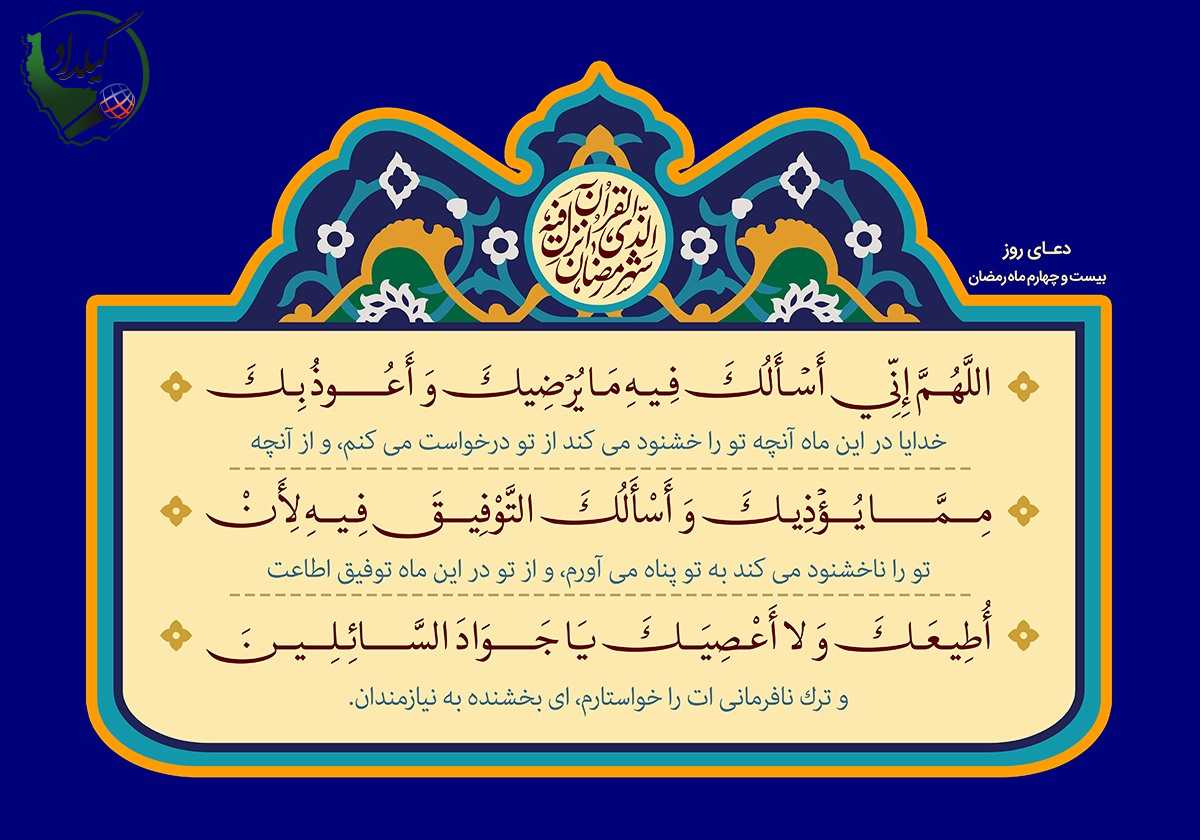 گیلداد
شهر رمضان
الذی انزل فیه
القرآن
دعـای روز
بیست و چهارم ماه رمضان
اللَّهُمَّ إِنِّي أَسْأَلُكَ فِيهِ مَا يُرْضِيكَ وَ أَعُوذُ بِكَ
خدایا در این ماه آنچه تو را خشنود می کند از تو درخواست می کنم، و از آنچه
مِمَّا يُؤْذِيكَ وَ أَسْأَلُكَ التَّوْفِيقَ فِيهِ لِأَنْ
تو را ناخشنود می کند به تو پناه می آورم، و از تو در این ماه توفیق اطاعت
أُطِيعَكَ وَ لا أَعْصِيَكَ يَا جَوَادَ السَّائِلِينَ
و ترك نافرمانی ات را خواستارم، ای بخشنده به نیازمندان.